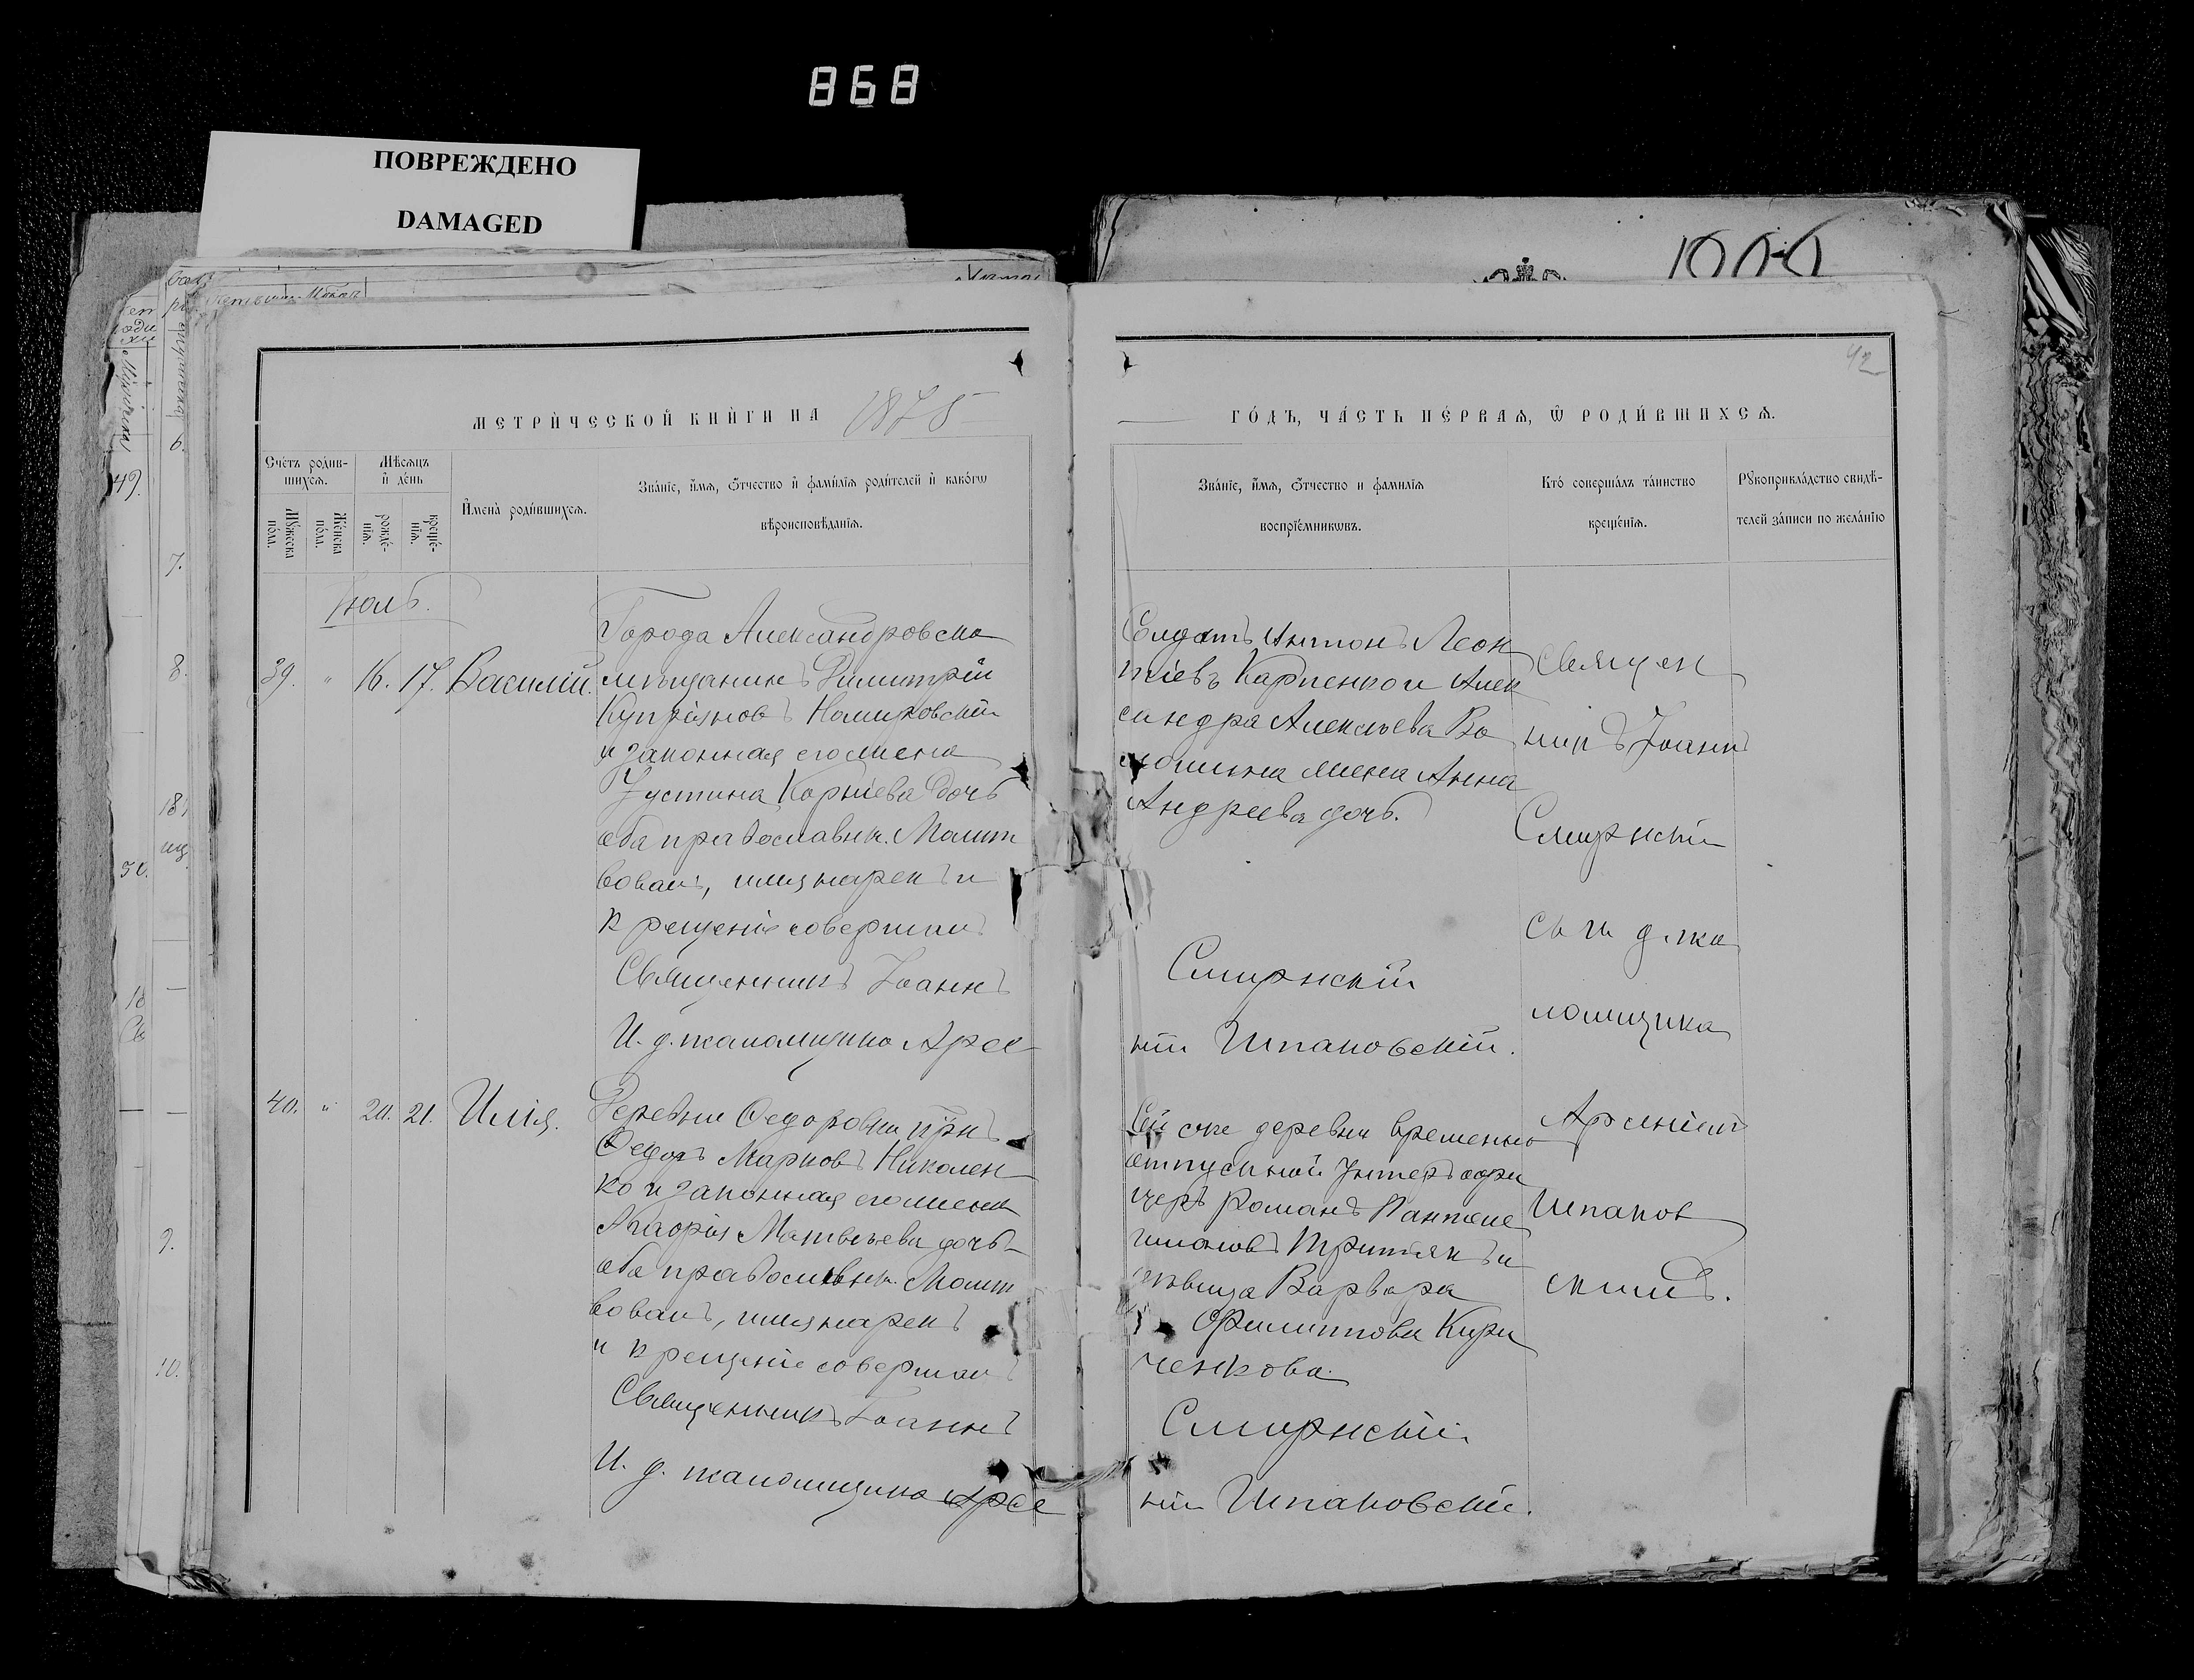 868
ПОВРЕЖДЕНО
DAMAGED
42
МЕТРИЧЕСКОЙ КНИГИ НА 1875 ГОДЪ, ЧАСТЬ ПЕРВАЯ, Ѿ РОДИВШИХСЯ.
Счетъ родив-
шихся.
Мѣсяцъ
и день
Мужеска
пола.
Женска
пола.
рожде-
нія.
креще-
нія.
Имена родившихся.
Званіе, имя, отчество и фамилія родителей и какогѡ
вѣроисповѣданія.
Званіе, имя, отчество и фамилія
воспріемникѡвъ.
Кто совершалъ таинство
крещенія.
Рукоприкладство свидѣ-
телей записи по желанію
Іюль.
39. " 16. 17. Василій.
Города Александровска
мѣщанинъ Димитрій
Купріяновъ
и законная его жена
Іустина Корніева дочь
оба православн. Молит
вовалъ, имя нарекъ и
крещеніе совершалъ
Священникъ Іоаннъ
И. д. псаломщика Арсе
Солдатъ Антонъ Леон
тіевъ Карпенко и Алек
сандра Алексѣева Во
жена Анна
Андреева дочь.
Смирнскій
ній Шпаковскій.
Священ
никъ Іоаннъ
Смирнскій
съ и д. пса
ломщика
Арсеніемъ
Шпаков
скимъ.
40. " 20. 21. Илія.
Деревни Федоровки
Федоръ Марковъ Николен
ко и законная его жена
Матвѣева дочь
оба православн. Молит
вовалъ, имя нарекъ
и крещеніе совершалъ
Священникъ Іоаннъ
И. д. псаломщика Арсе
Сей же деревни временно
отпускной Унтеръ офи
церъ Романъ Пантеле
имоновъ Притыка и
дѣвица Варвара
Филиппова Кири
ченкова.
Смирнскій
ній Шпаковскій.